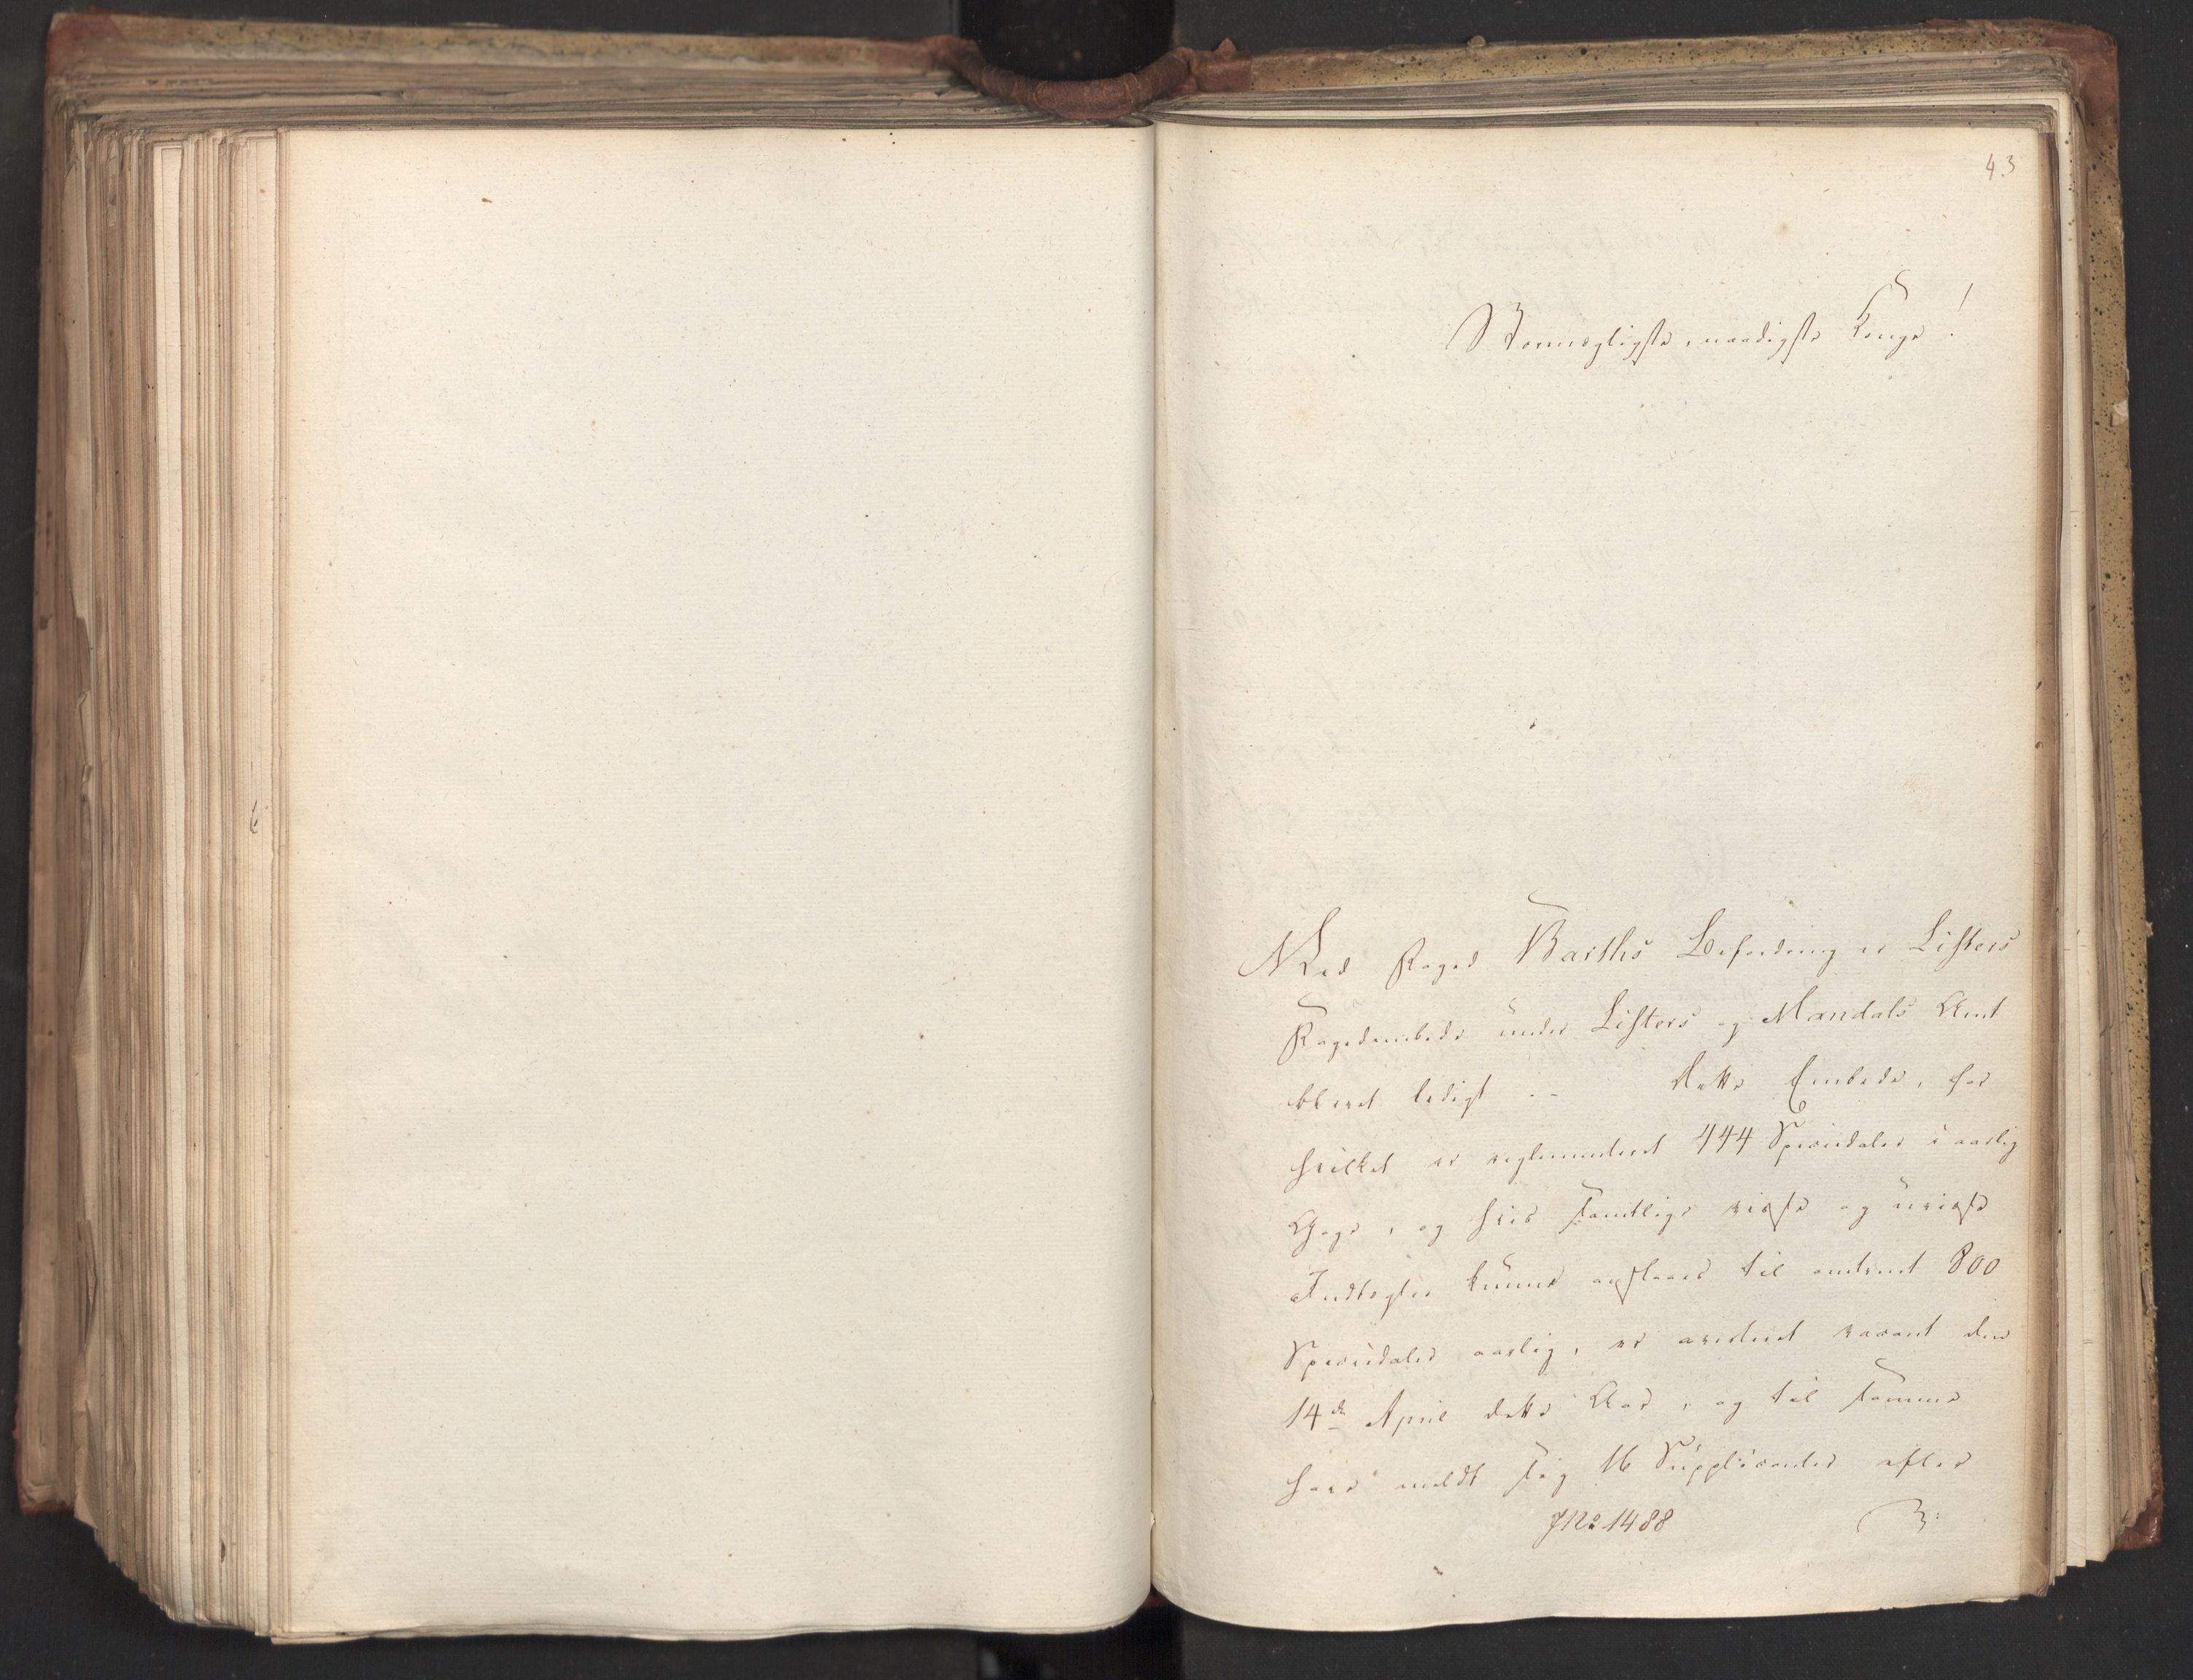 43
Stormægtigste, naadigste Konge!
Med Foged Barths Befordring er Listers
Fogedembede under Listers og Mandals Amt
blevet ledigt. -- Dette Embede, for
hvilket er reglementeret 444 Speciedaler i aarlig
Gage, og hvis samtlige visse og uvisse
Indtægter kunne anslaaes til omtrent 800
Speciedaler aarlig, er averteret vacant den
14de April dette Aar, og til samme
have meldt sig 16 Supplicanter efter
JNo 1488